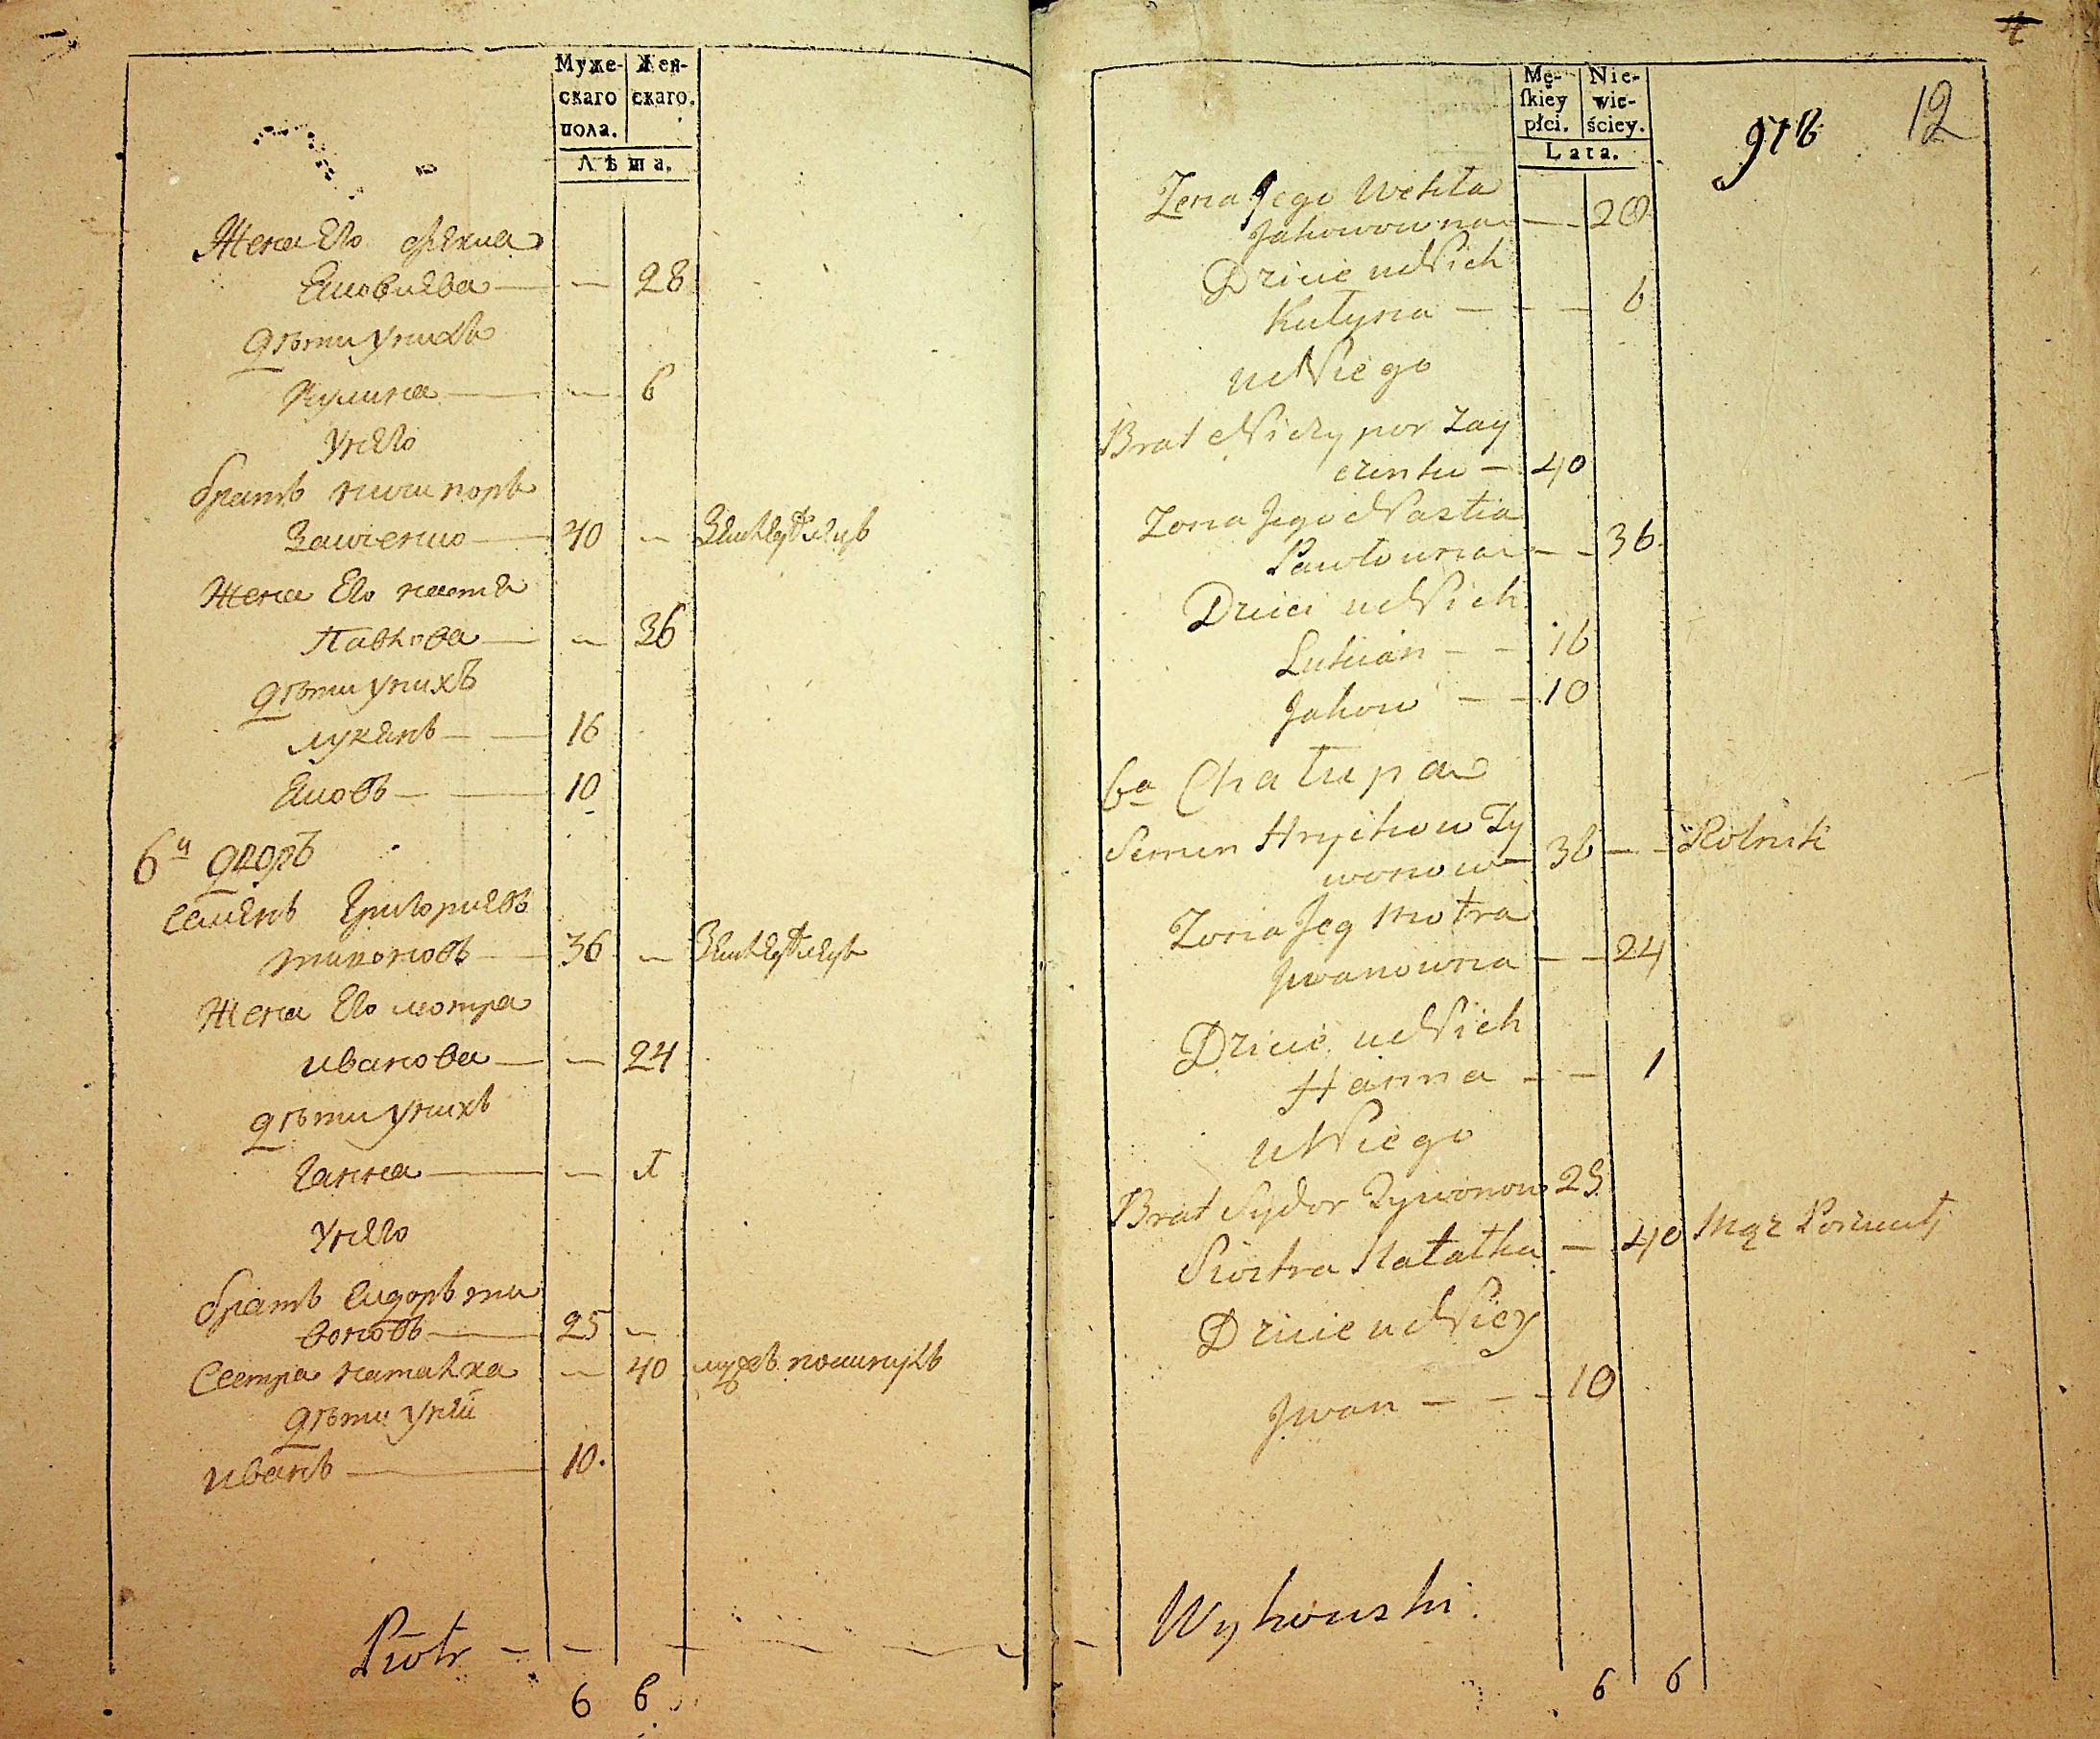 Муже-
скаго
пола.
Жен-
скаго.
Лѣта.
Жена Его фекла
Яковлева — — 28
Дѣти униxъ
Кулина — — 6
Унего
братъ ничипоръ
Заиченко — 40 —
Жена Его настя
Павлова — — 36
Дѣти унихъ
лукянъ — — 16
Яковъ — — 10
6й дворъ
Семенъ Григориевъ
тивоновъ — 36 —
Жена Его мотра
иванова — — 24
Дѣти унихъ
Ганна — — 1
Унего
братъ Сидоръ ти
воновъ — 25 —
Сестра наталка — 40 мужъ
Дѣти уней
иванъ — 10.
Piotr — —
6 6
Mę-
skiey
płci.
Nie-
wie-
ściey.
Lata.
12
Zona Jego Wekła
Jakowowna — — 28
Dzicie u Nich
Kulyna — — — 6
u Niego
Brat Niczypor Zay
czenku — 40
Zona Jego Nastia
Pawłowna — — 36
Dzieci u Nich
Lukian — — 16
Jakow — — 10
6a Chałupa
Semen Hryikow Ty
wonow — 36 — — Rolnik
Zona Jeg Motra
Jwanowna — — 24
Dzicie u Nich
Hanna — — 1
u Niego
Brat Sydor Tywonow 25
Siostra Natałka — 40 Mąż
Dzicie u Niey
Jwan — — — 10
— Wyhowski.
6 6